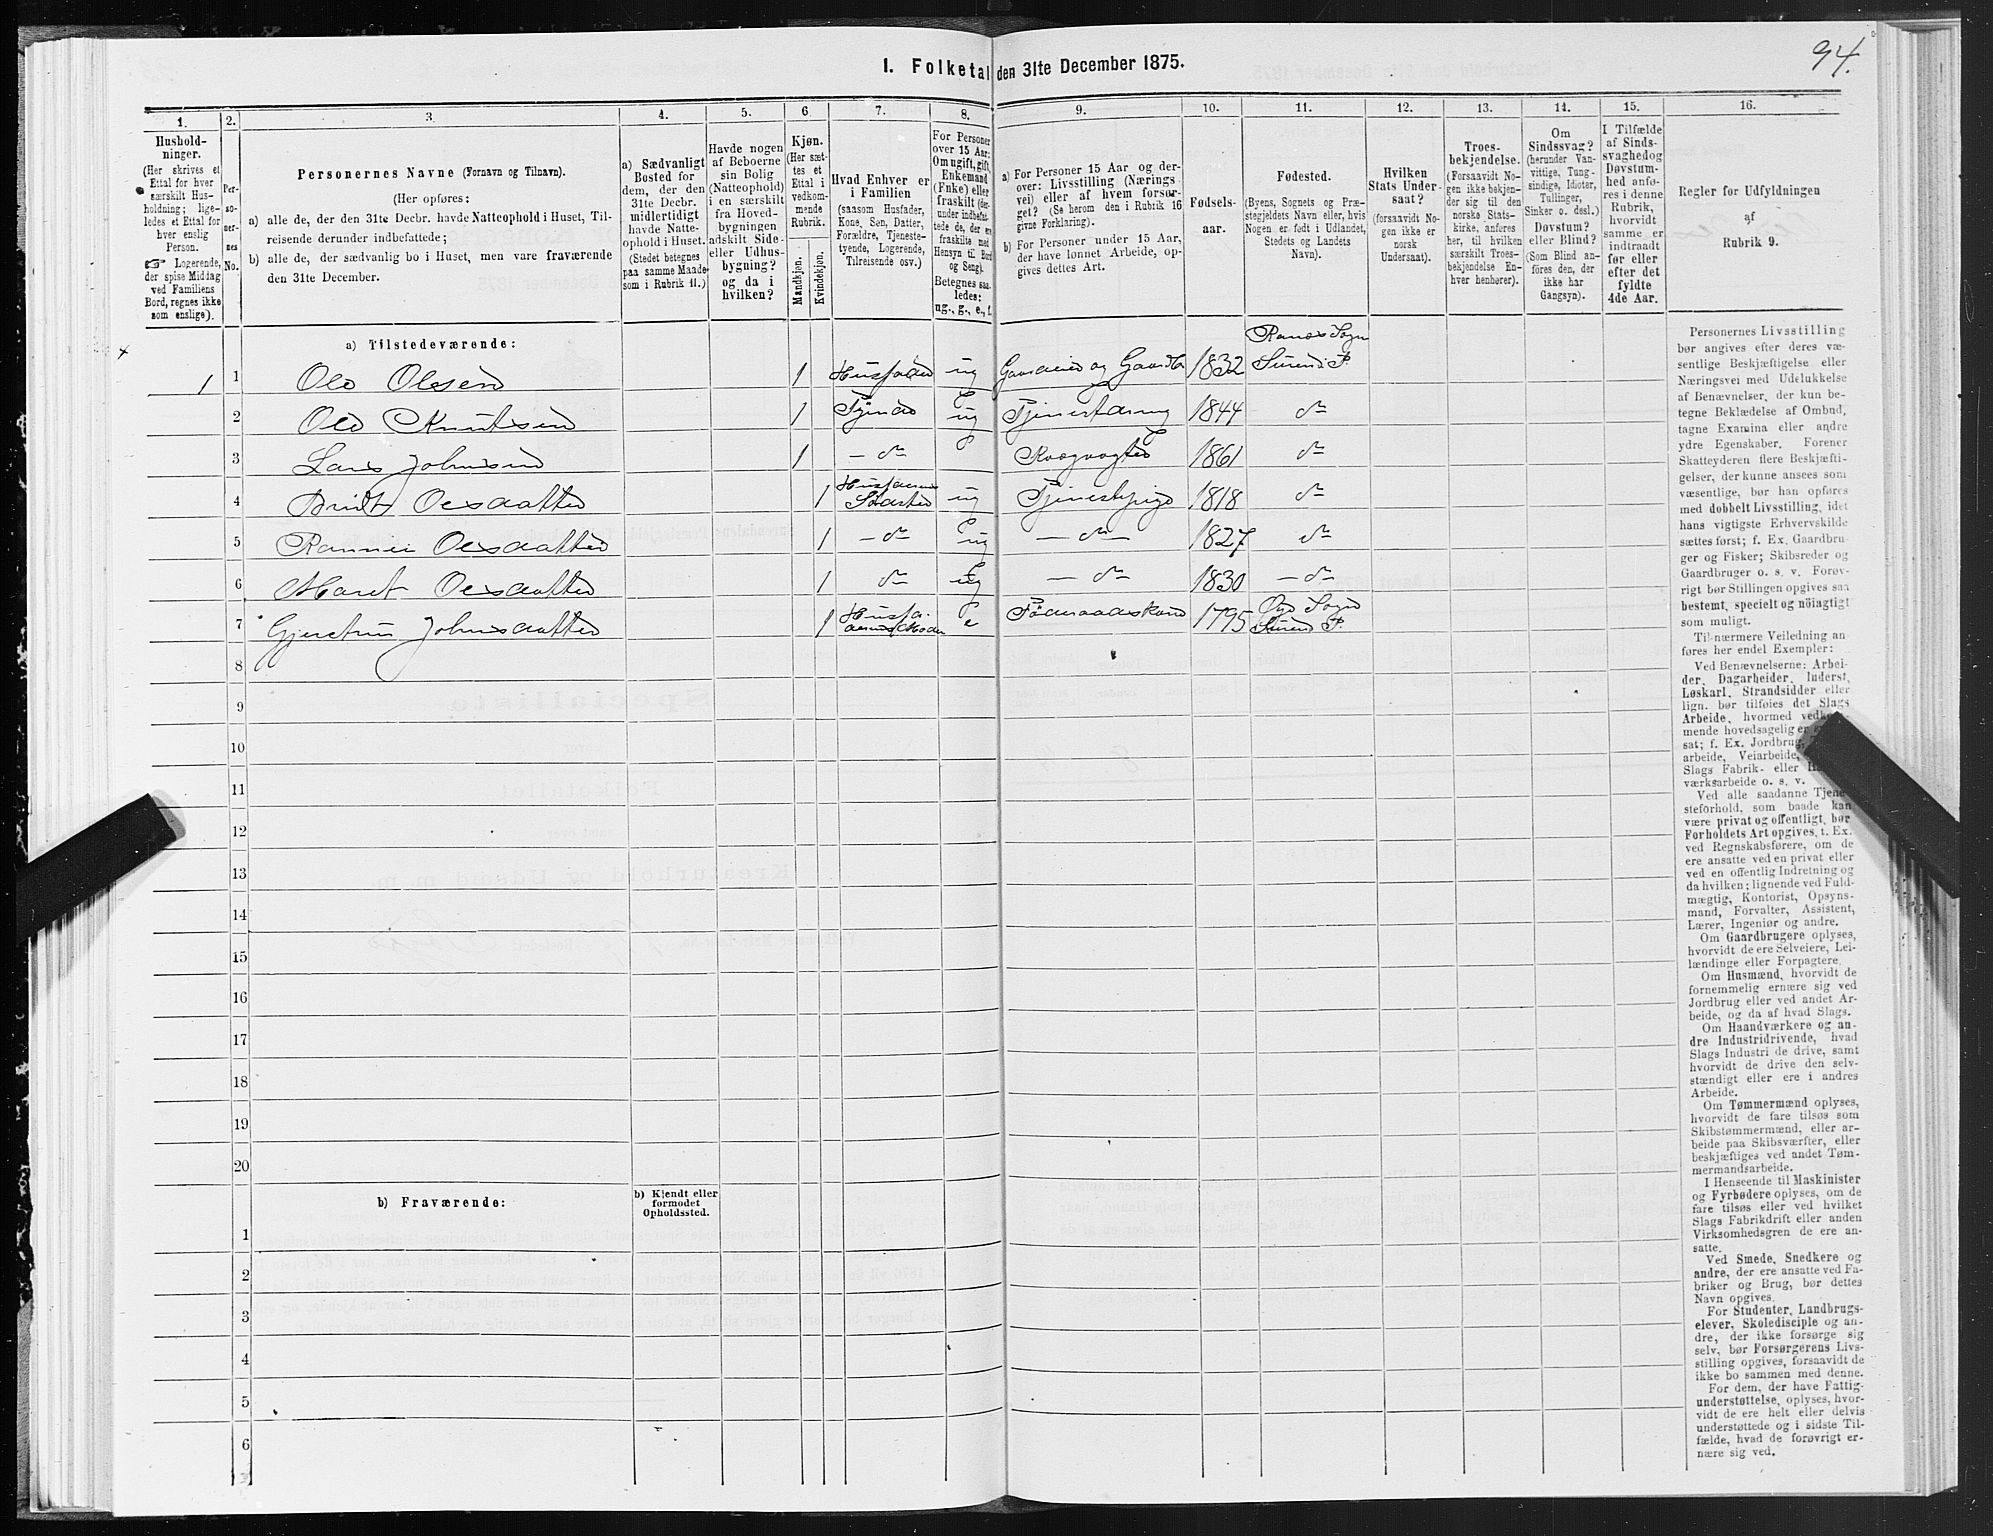 94.
I. Folketal den 31te December 1875.
1.
2.
3.
4.
5.
6
7.
8.
9.
10.
11.
12.
13.
14.
15.
16.
Hushold-
ninger.
(Her skrives et
Ettal for hver
særskilt Hus-
holdning; lige-
ledes et Ettal for
hver enslig
Person.
☞ Logerende,
der spise Middag
ved Familiens
Bord, regnes ikke
som enslige).
Per-
so-
ner-
nes
No.
Personernes Navne (Fornavn og Tilnavn).
(Her opføres:
a) alle de, der den 31te Decbr. havde Natteophold i Huset, Til-
reisende derunder indbefattede;
b) alle de, der sædvanlig bo i Huset, men vare fraværende
den 31te December.
a) Sædvanligt
Bosted for
dem, der den
31te Decbr.
midlertidigt
havde Natte-
ophold i Huset.
(Stedet betegnes
paa samme Maade
som i Rubrik 11.)
Havde nogen
af Beboerne
sin Bolig
(Natteophold)
i en særskilt
fra Hoved-
bygningen
adskilt Side-
eller Udhus-
bygning?
og da i
hvilken?
Kjøn.
(Her sæt-
tes et
Ettal i
vedkom-
mende
Rubrik.
Mandkjøn.
Kvindekjøn.
Hvad Enhver er
i Familien
(saasom Husfader,
Kone, Søn, Datter,
Forældre, Tjeneste-
tyende, Logerende,
Tilreisende osv.)
For Personer
over 15 Aar:
Om ugift, gift,
Enkemand
(Enke) eller
fraskilt (der-
under indbefat-
tede de, der ere
fraskilte med
Hensyn til Bord
og Seng).
Betegnes saa-
ledes:
ug., g., e., f.
a) For Personer 15 Aar og der-
over: Livsstilling (Nærings
vei) eller af hvem forsør-
get? (Se herom den i Rubrik 16
givne Forklaring).
b) For Personer under 15 Aar,
der have lønnet Arbeide, op-
gives dettes Art.
Fødsels-
aar.
Fødested.
(Byens, Sognets og Præ-
stegjeldets Navn eller, hvis
Nogen er født i Udlandet,
Stedets og Landets
Navn).
Hvilken
Stats Under-
saat?
(forsaavidt No-
gen ikke er
norsk
Undersaat).
Troes-
bekjendelse.
(Forsaavidt No-
gen ikke bekjen-
der sig til den
norske Stats-
kirke, anføres
her, til hvilken
særskilt Troes-
bekjendelse En-
hver henhører).
Om
Sindssvag?
(herunder Van-
vittige, Tung-
sindige, Idioter,
Tullinger,
Sinker o. desl.)
Døvstum?
eller Blind?
(Som Blind an-
føres den, der
ikke har
Gangsyn).
I Tilfælde
af Sinds-
svaghed og
Døvstum-
hed anfø-
res i denne
Rubrik,
hvorvidt
samme er
indtraadt
før eller
efter det
fyldte
4de Aar.
Regler for Udfyldningen
af
Rubrik 9.
a) Tilstedeværende:
1 1 Ole Olsen 1 Husfader ug Gaardeier og 1832 Ranes Sogn Suren. P.
2 Ole Knutsen 1 Tjener ug 1844 do
3 Lars Johnsen 1 - do 1861 do
4 Oesdatter 1 Søster ug 1818 do
5 Rannei Oesdatter 1 - do ug - do - 1827 do
6 Maret Oesdatter 1 do ug - do 1830 - do
7 Johnsdatter 1 Moder e Føderaadskone 1795 Øie Sogn Suren. P.
8
9
10
11
12
13
14
15
16
17
18
19
20
b) Fraværende:
b) Kjendt eller
formodet
Opholdssted.
1
2
3
4
5
6
Personernes Livsstilling
bør angives efter deres væ-
sentlige Beskjæftigelse eller
Næringsvei med Udelukkelse
af Benævnelser, der kun be-
tegne Beklædelse af Ombud,
tagne Examina eller andre
ydre Egenskaber. Forener
Skatteyderen flere Beskjæfti-
gelser, der kunne ansees som
væsentlige, bør han opføres
med dobbelt Livsstilling, idet
hans vigtigste Erhvervskilde
sættes først; f. Ex. Gaardbru-
ger og Fisker; Skibsreder og
Gaardbruger o. s. v. Forøv-
rigt bør Stillingen opgives saa
bestemt, specielt og nöiagtigt
som muligt.
Til nærmere Veiledning an-
føres her endel Exempler:
Ved Benævnelserne: Arbei-
der, Dagarbeider, Inderst,
Løskarl, Strandsidder eller
lign. bør tilføies det Slags
Arbeide, hvormed
mende hovedsagelig er
sat; f. Ex. Jordbrug,
arbeide, Veiarbeide,
Slags Fabrik- eller
værksarbeide o. s. v.
Ved alle saadanne Tjene-
steforhold, som baade kan
være privat og offentligt, bør
Forholdets Art opgives, t. Ex.
ved Regnskabsførere, om de
ere ansatte ved en privat eller
ved en offentlig Indretning og
da hvilken; lignende ved Fuld-
mægtig, Kontorist, Opsyns-
mand, Forvalter, Assistent,
Lærer, Ingeniør og andre.
Om Gaardbrugere oplyses,
hvorvidt de ere Selveiere, Lei-
lændinge eller Forpagtere.
Om Husmænd, hvorvidt de
fornemmelig ernære sig ved
Jordbrug eller ved andet Ar-
beide, og da af hvad Slags.
Om Haandværkere og an-
dre Industridrivende, hvad
Slags Industri de drive, samt
hvorvidt de drive den selv-
stændigt eller ere i andres
Arbeide.
Om Tømmermænd oplyses,
hvorvidt de fare tilsøs som
Skibstømmermænd, eller ar-
beide paa Skibsværfter, eller
beskjæftiges ved andet Tøm-
mermandsarbeide.
I Henseende til Maskinister
og Fyrbødere oplyses, om de
fare tilsøs eller ved hvilket
Slags Fabrikdrift eller anden
Virksomhedsgren de ere an-
satte.
Ved Smede, Snedkere og
andre, der ere ansatte ved Fa-
briker og Brug, bør dettes
Navn opgives.
For Studenter, Landbrugs-
elever, Skoledisciple og an-
dre, der ikke forsørge sig
selv, bør Forsørgerens Livs-
stilling opgives, forsaavidt de
ikke bo sammen med denne.
For dem, der have Fattig-
understøttelse, oplyses, hvor-
vidt de ere helt eller delvis
understøttede og i sidste Til-
fælde, hvad de forøvrigt er-
nære sig ved.